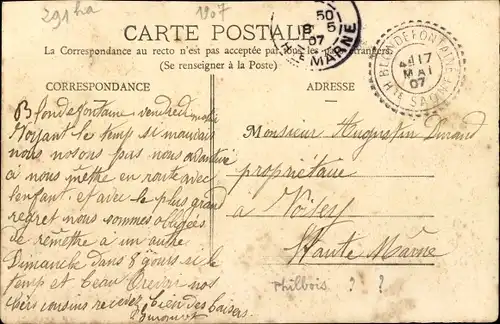 Egsha
1207
CARTE POSTALE
La Correspondance au recto n'est pas acceptée par tous les pays étrangers.
(Se renseigner à la Poste)
50
8 5
07
MARNE
BLONDEFONTAINE
17
MAI
07
Hte SAÔNE
CORRESPONDANCE
Blondefontaine vendredi matin
Voyant le temp si mauvais
nous nosons pas nous avanturé
à nous mettre en route avec
lenfant, et avec le plus grand
regret nous sommes obligées
de remettre a un autre
Dimanche dans 8 jours si le
temp et beau Recevez nos
chers cousins recevez bien des baisers
ADRESSE
Monsieur Augustin Durand
propriétaire
a Voisey
Haute Marne
Philbois ? ?